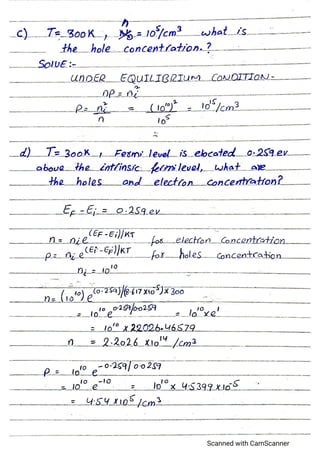 n
c) T= 300K , N̶D̶ = 10⁵/cm³ what is
the hole concentration. ?
SOLVE :-
UNDER EQUILIBRIUM CONDITION -
np = ni²
p = ni²/n = (10¹⁰)²/10⁵ = 10¹⁵/cm³
d) T= 300K , Fermi level is elocated 0.259 ev
above the intrinsic fermi level, what are
the holes and electron concentration?
EF - Ei = 0.259.ev
n = ni e^(EF-Ei)/KT for electron concentration
p = ni e^(Ei-EF)/KT for holes concentration
ni = 10¹⁰
n = (10¹⁰) e^(0.259)/(8.617×10⁻⁵)×300
= 10¹⁰ e^0.259/0.0259 = 10¹⁰ × e¹
= 10¹⁰ × 22026.46579
n = 2.2026 ×10¹⁴ /cm³
p = 10¹⁰ e^-0.259/0.0259
= 10¹⁰ e⁻¹⁰ = 10¹⁰ × 4.5399 × 10⁻⁵
= 4.54 × 10⁵ /cm³
Scanned with CamScanner